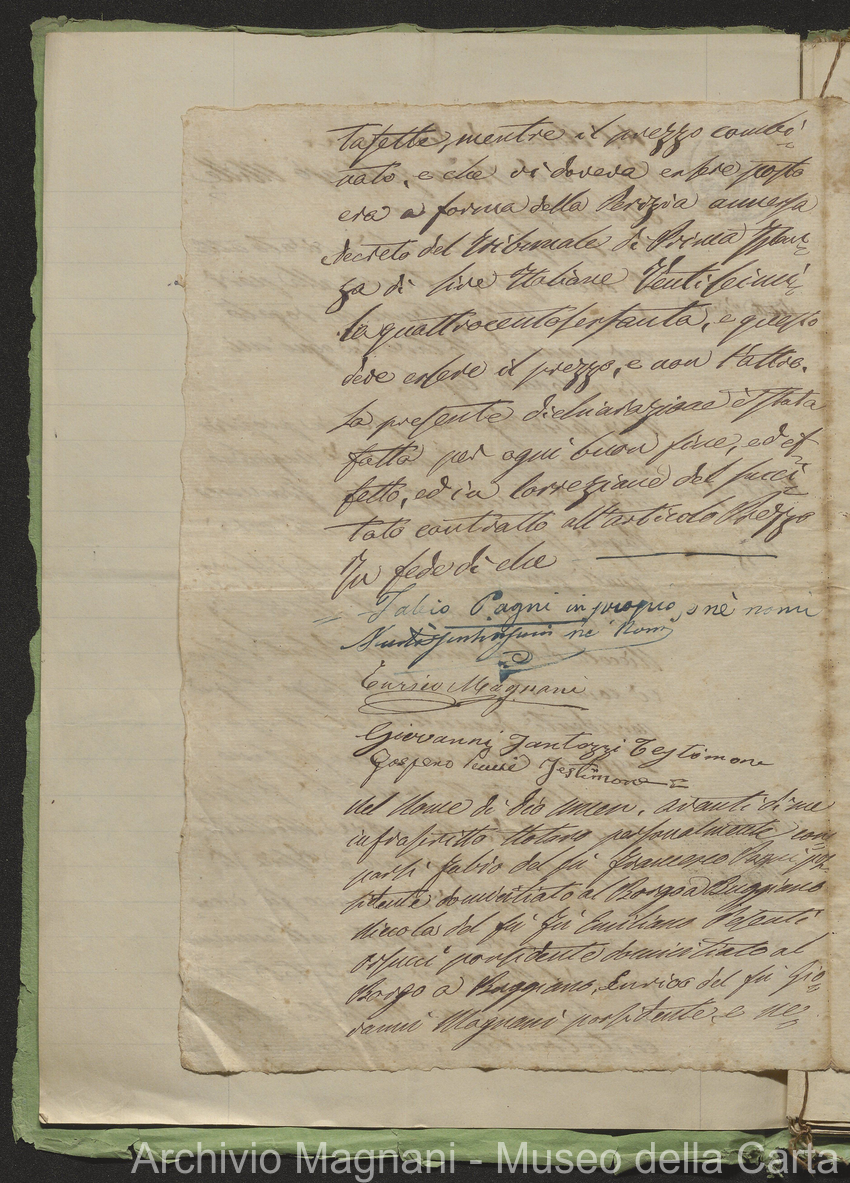 tasette, mentre il prezzo combi=
nato, e che vi doveva essere posto
era a forma della Perizia annessa
decreto del Tribunale di Prima Istan=
za di Lire Italiane Ventisei mi=
la quattrocentosessanta, e questo
deve essere il prezzo, e non l'altro.
La presente dichiarazione è stata
fatta per ogni buon fine, ed ef=
fetto, ed in correzione del succi=
tato contratto all'articolo Prezzo
In fede di che
Fabio Pagni in proprio, e nè nomi
nè Nomi
Enrico Magnani
Giovanni Fantozzi Testimone
Gaspero Testimone
Nel Nome di Dio Amen. avanti di me
infrascritto Notaro personalmente com=
parsi Fabio del fù Francesco Pagni pos=
sidente domiciliato al Borgo a Buggiano
Nicola del fù Emiliano
possidente domiciliato al
Borgo a Buggiano, Enrico del fù Gio=
vanni Magnani possidente, e ne=
Archivio Magnani - Museo della Carta